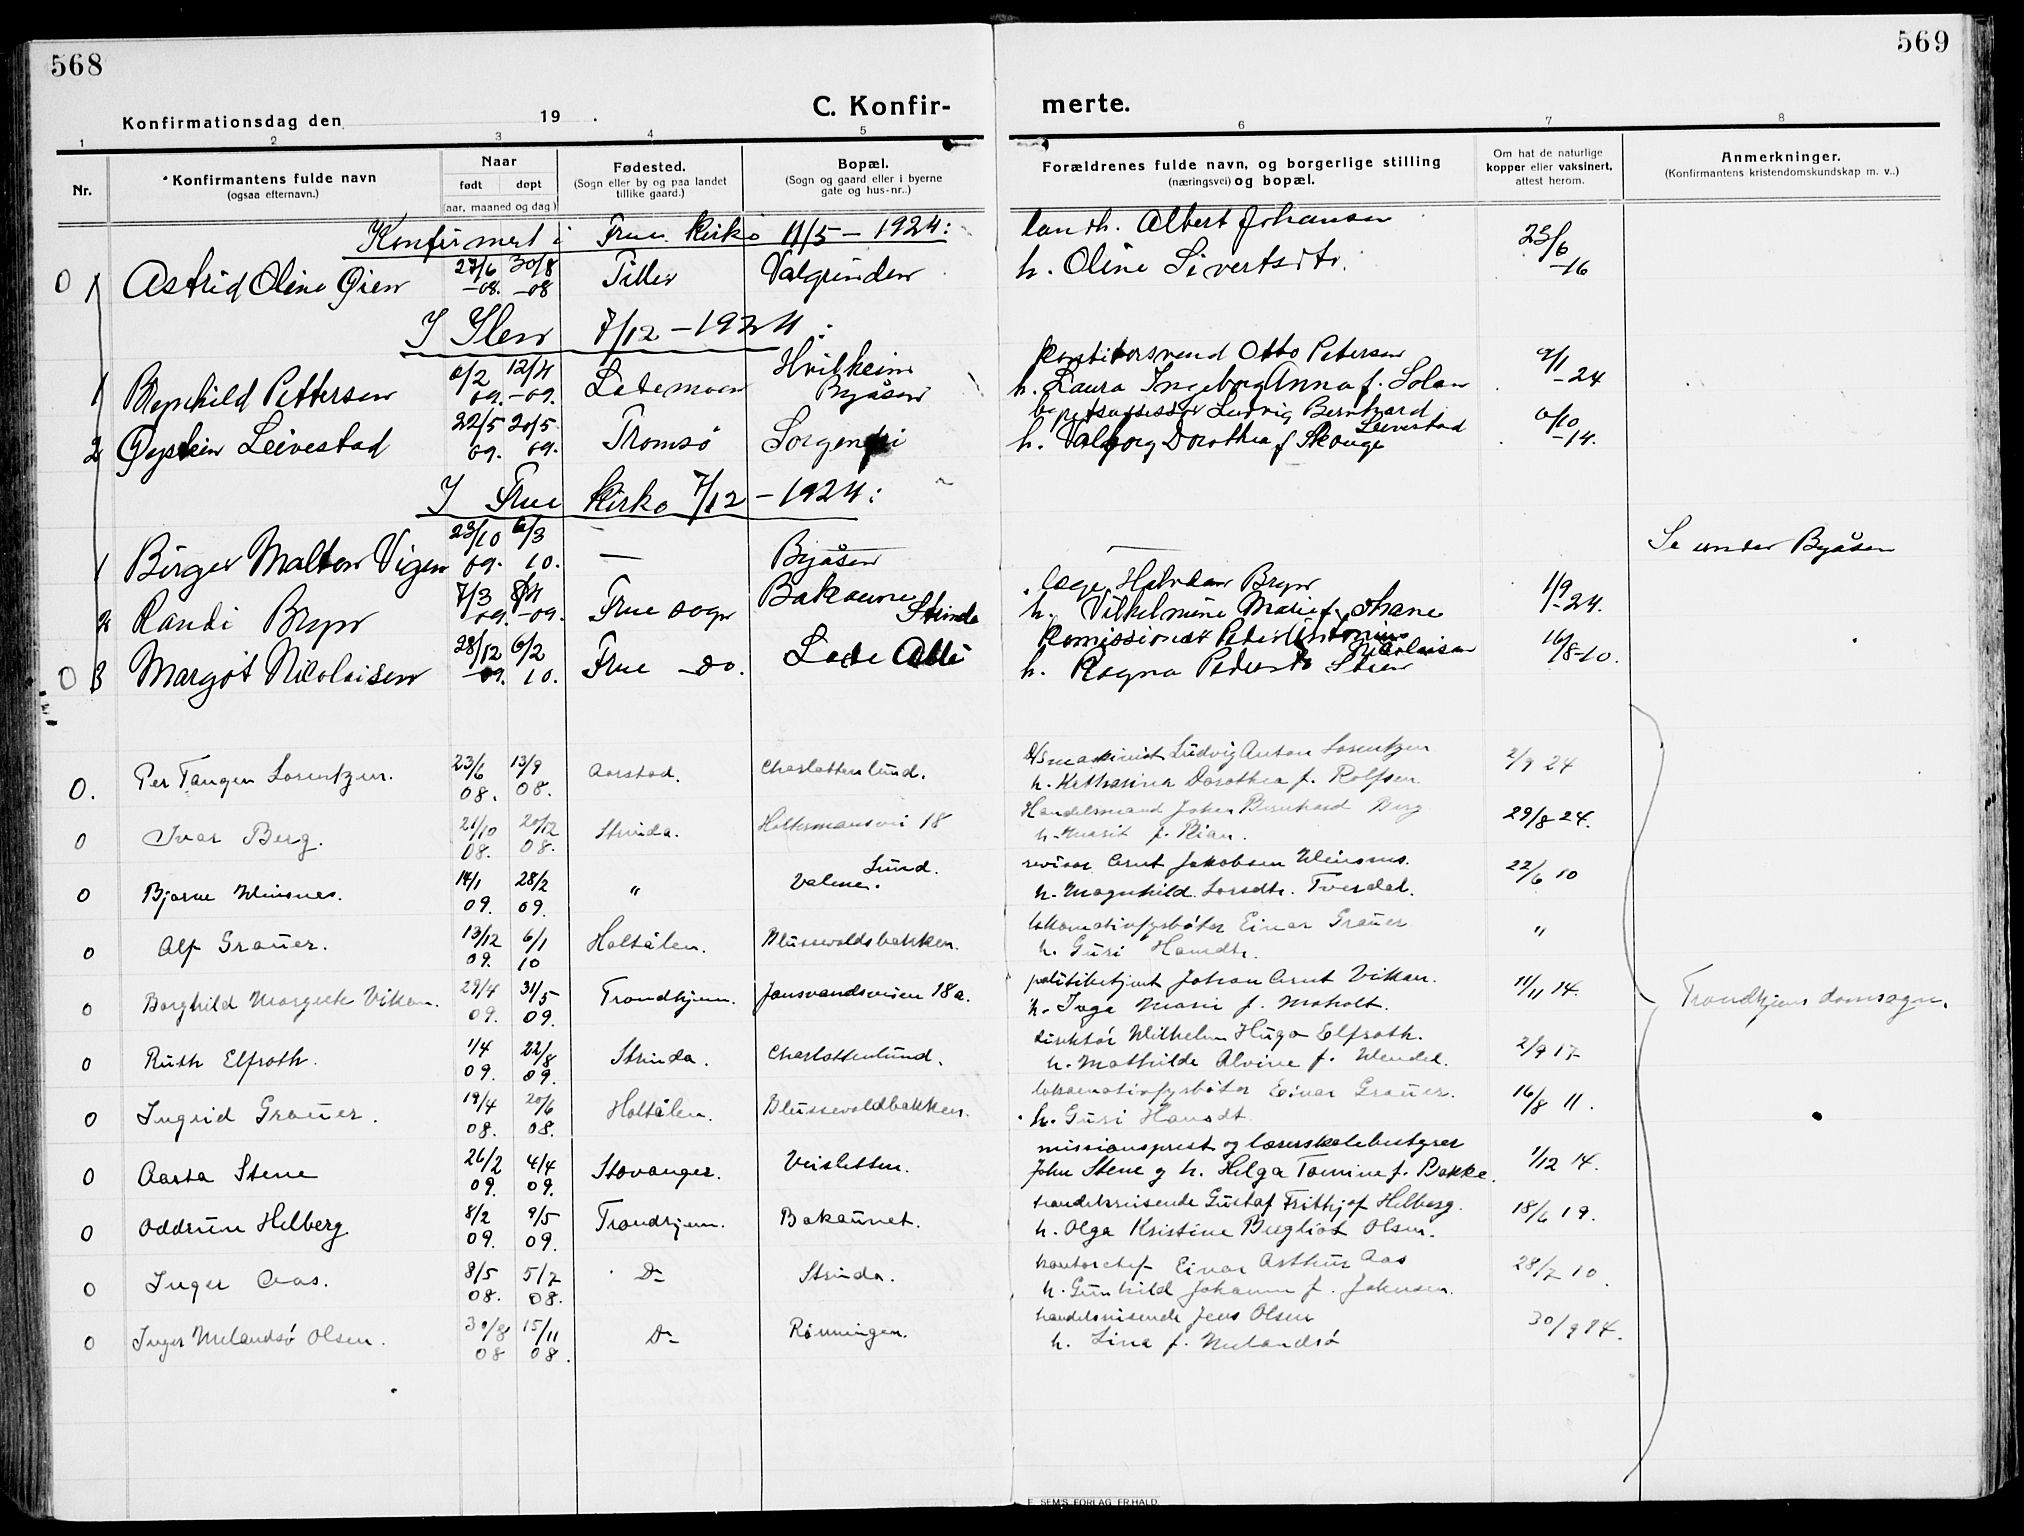 568
569
Konfirmationsdag den 19 .
C. Konfir-
merte.
1 2 3 4 5 6 7 8
Nr.
Konfirmantens fulde navn
(ogsaa efternavn.)
Naar
født døpt
(aar, maaned og dag)
Fødested.
(Sogn eller by og paa landet
tillike gaard.)
Bopæl.
(Sogn og gaard eller i byerne
gate og hus-nr..)
Forældrenes fulde navn, og borgerlige stilling
(næringsvei) og bopæl.
Om hat de naturlige
kopper eller vaksinert,
attest herom.
Anmerkninger.
(Konfirmantens kristendomskundskap m. v..)
Konfirmert i Frue Kirke 11/5 - 1924:
landh. Albert Johansen
0 1 Astrid Oline Øien 27/6 -08. 30/8 -08 Tiller Valgrinden h. Oline Sivertsdtr. 23/6 -16
I Ilen 7/12 - 1924:
Konditorsvend Otto Petersen
1 Brynhild Pettersen 6/2 09. 12/4 -09. Lademoen Hvilheim Byåsen h. Laura Ingeborg Anna f. Solan 9/1 -24
Ludvig Bernhard Leivestad
2 Øystein Leivestad 22/5 09. 20/5 09. Tromsø Sorgenfri h. Valborg Dorothea f Skouge 6/10 -14.
I Frue Kirke 7/12 - 1924:
1 Birger Malton Vigen 23/10 09. 6/3 10. — Byåsen — Se under Byåsen
læge Halvdan Bryn
2 Randi Bryn 7/3 09. 8/4 -09. Frue sogn Bakaune Strinda h. Vilhelmine Marie f. 1/9 -24.
Komissionær Peder Antonius Nicolaisen
0 3 Margot Nicolaisen 28/12 -09. 6/2 10. Frue Do. Lade Allé h. Ragna Pedersdtr Steen 16/8-10.
maskinist Ludvig Anton Lorentzen
0. Per Tangen Lorentzen. 23/6 08. 13/9 08. Aarstad. Charlottenlund. h. Katharina Dorothea f. Rolfsen 2/9 24
Handelsmand Johan Bernhard Berg
0 Ivar Berg. 21/10 08. 20/12 08. Strinda. Holtermansvei 18 h. Marit f. Rian. 29/8 24.
revisor Arnt Jakobsen Weisnes.
0 Bjarne Weisnes. 14/1 09. 28/2 09. " Valene. Lund. h. Magnhild Larsdtr. Tverdal. 22/6 10
lokomotivfyrbøter Einar Graüer
0 Alf Graüer. 13/12 09. 6/1 10 Holtålen. Blussevoldsbakken. h. Guri Hansdtr. "
politibetjent Johan Arnt Vikan.
0 Borghild Margrete Vikan. 29/4 09. 31/5 09. Trondhjem. Jonsvandsveien 18a. h. Inga Marie f. Moholt. 11/11 14. Trondhjems domsogn.
direktør Wilhelm Hugo Elfroth.
0 Ruth Elfroth. 1/4 09. 22/8 09. Strinda. Charlottenlund. h. Mathilde Alvine f. Wendel. 2/9 17
lokomotivfyrbøter Einar Graüer.
0 Ingrid Graüer. 19/4 08. 20/6 08. Holtålen. Blussevoldbakken. h. Guri Hansdt. 16/8 11.
missionsprest og lærerskolebestyrer
0 Aasta Stene 26/2 09. 4/4 09. Stavanger. Veisletten. John Stene g h. Helga Tomine f. Bakke. 1/12 14.
handelsreisende Gustaf Frithjof Helberg.
0 Oddrün Helberg 8/2 09. 9/5 09. Trondhjem. Bakaunet. h. Olga Kristine Bergliot Olsen. 18/6 19.
kontorchef Einar Arthur Aas
0 Inger Aas. 8/5 08. 5/7 08. Do Strinda. h. Gunhild Johanne f. Johnsen. 28/7 10.
handelsreisende Jens Olsen
0 Inger Melandsø Olsen. 30/8 08 15/11 08. Do Rønningen. h. Lina f. Melandsø 30/9 14.
E. SEM'S FORLAG, FR.HALD